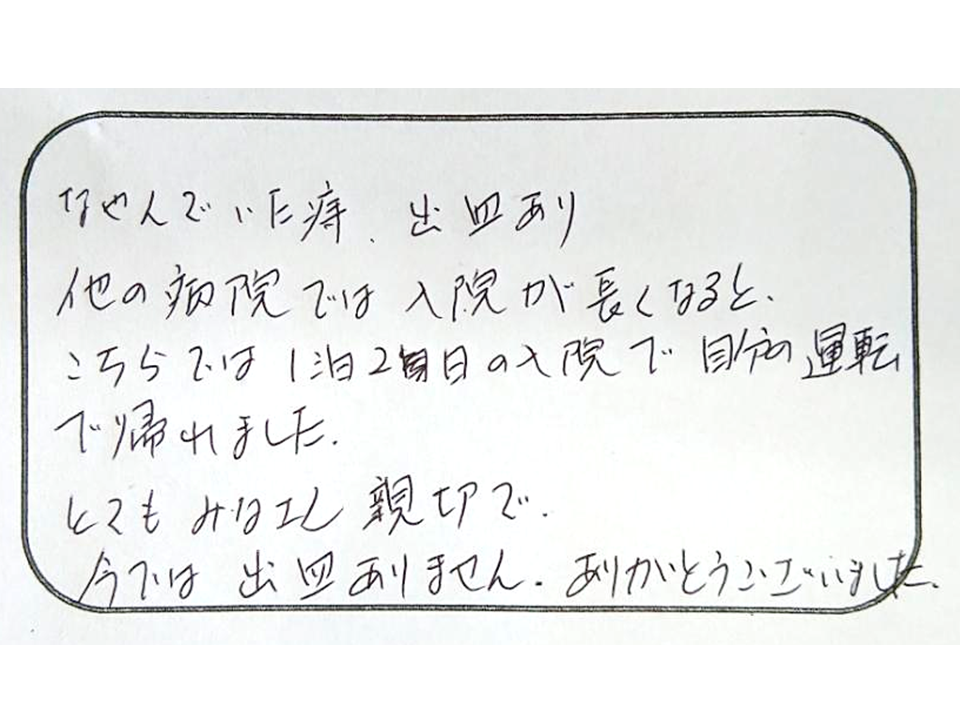 なやんでいた痔、出血あり
他の病院では入院が長くなると、
こちらでは1泊2日の入院で自分の運転
で帰れました。
とてもみなさん親切で、
今では出血ありません。ありがとうございました。